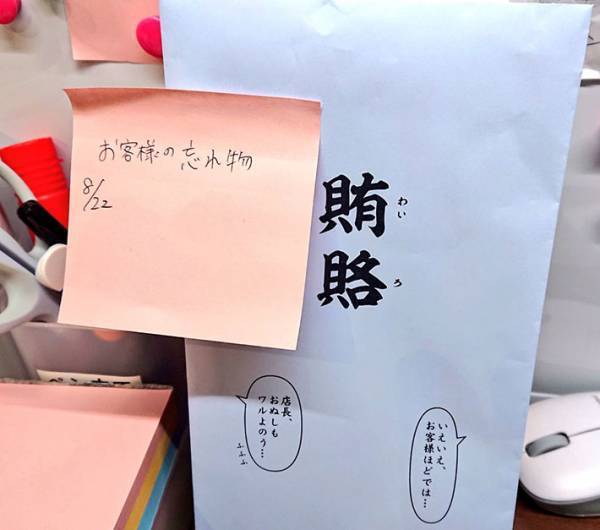 お客様の忘れ物
8/22
賄賂
わいろ
店長、
おぬしも
ワルよのう…
ふふふ
いえいえ、
お客様ほどでは…